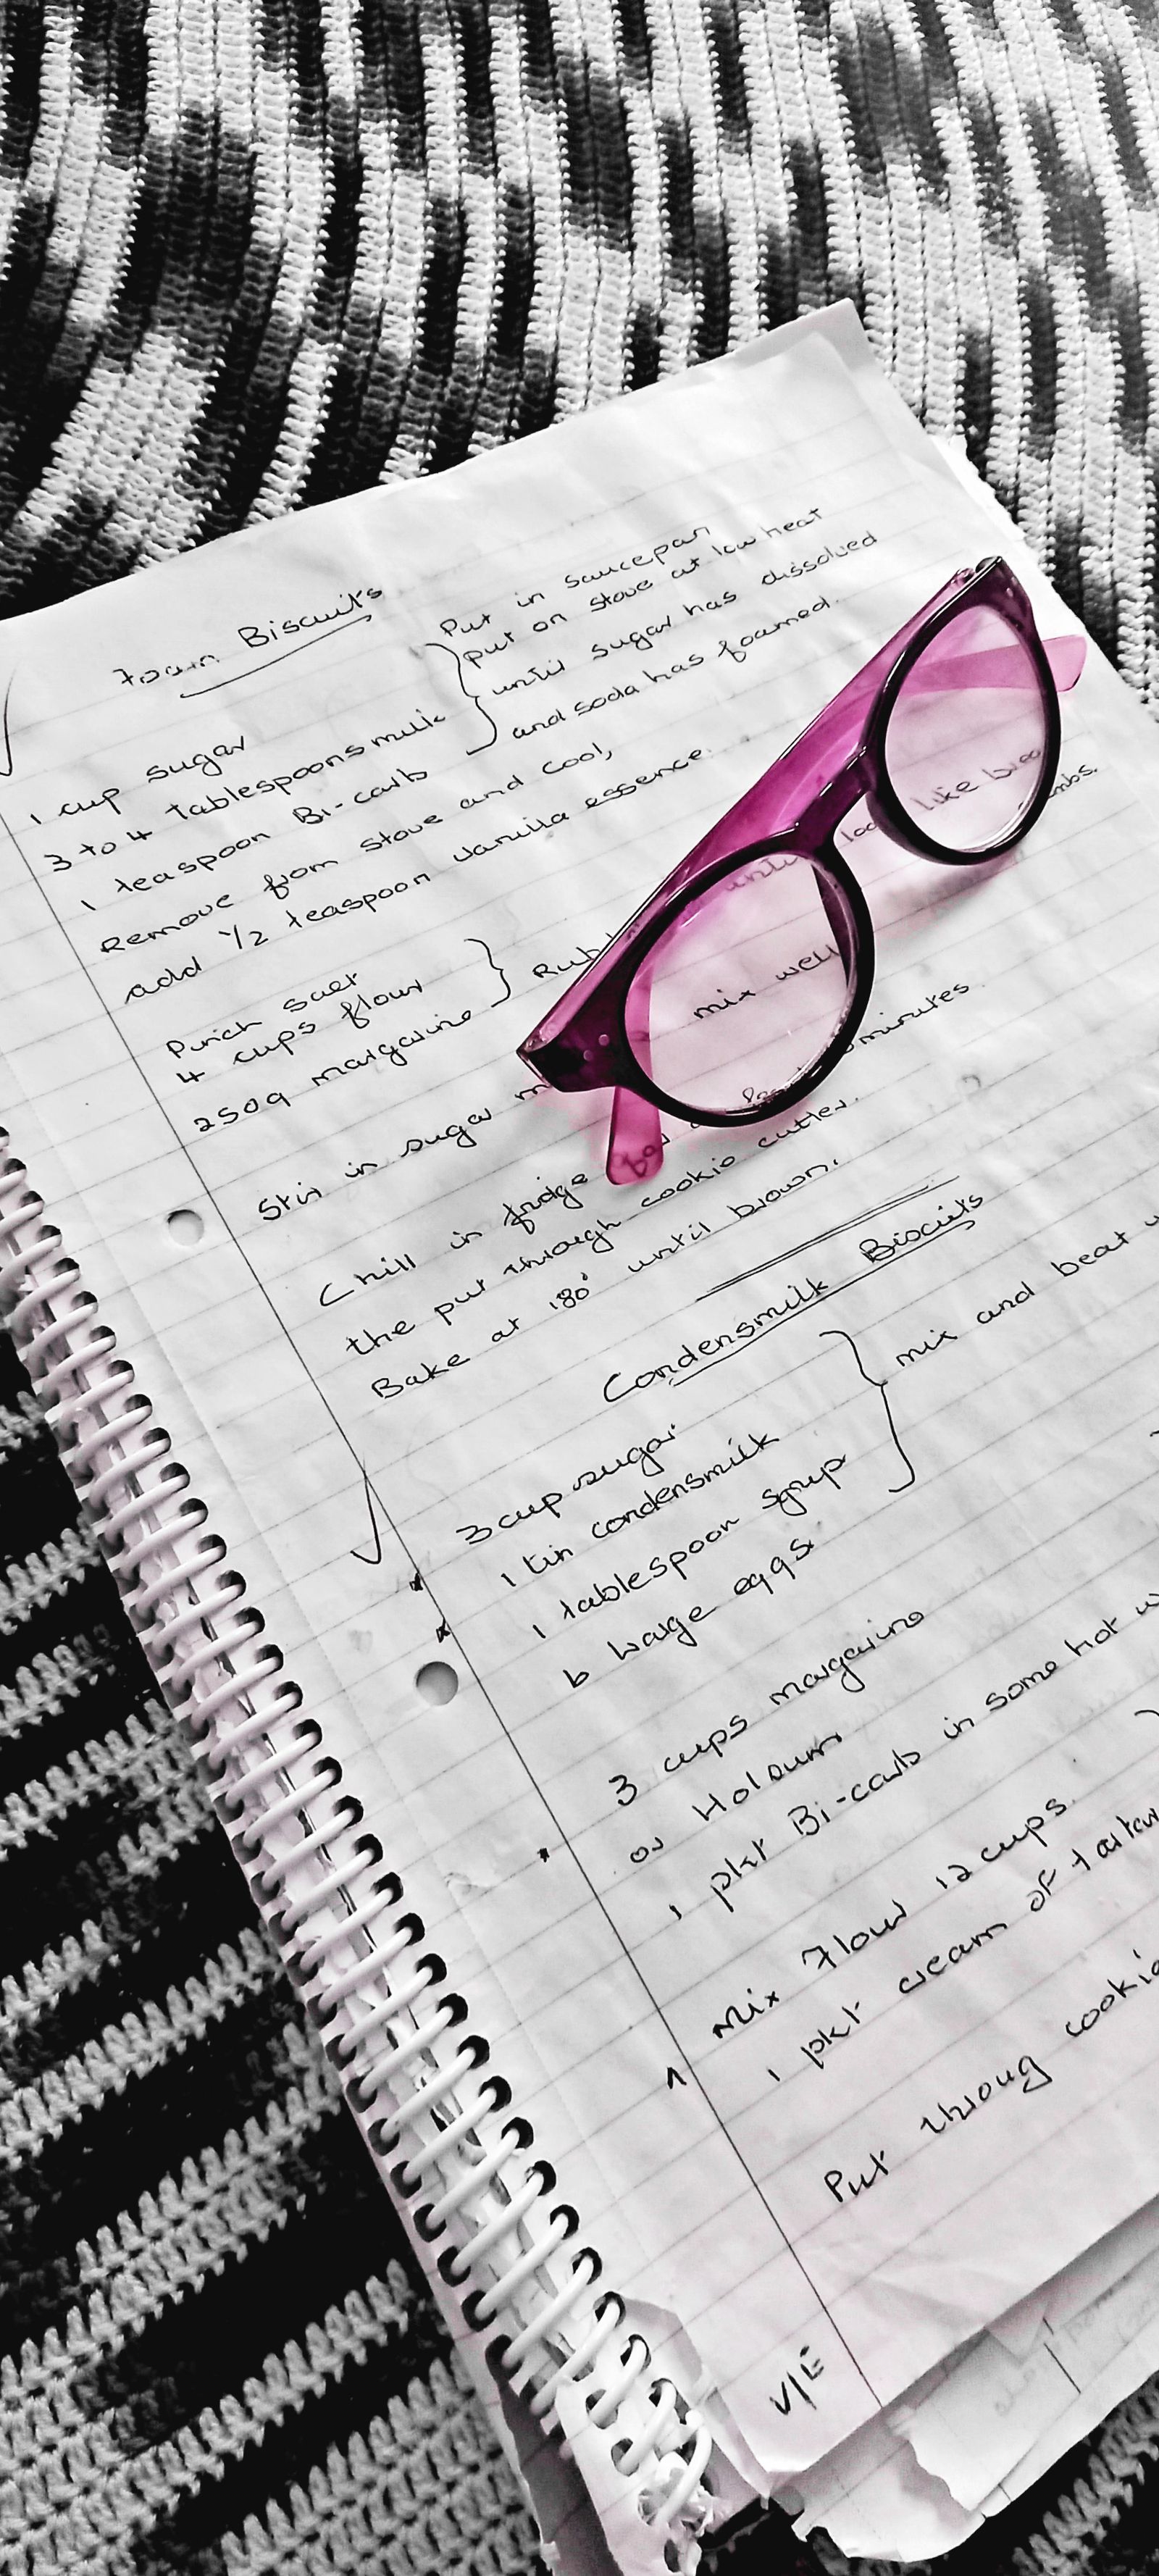 Foam Biscuits
1 cup sugar
3 to 4 tablespoons milk
1 teaspoon Bi-carb
Put in saucepan
put on stove at low heat
until sugar has dissolved
and soda has foamed.
Remove from stove and cool,
add 1/2 teaspoon vanilla essence.
Pinch salt
4 cups flour
250g margarine
Rub
until look like
mix well
Stir in sugar
Chill in fridge for minutes.
the put through cookie cutter.
Bake at 180° until brown.
Condensmilk Biscuits
3 cup sugar
1 tin condensmilk
1 tablespoon syrup
6 Large eggs
mix and beat
3 cups margarine
or Holsum
1 pkt Bi-carb in some hot
Mix Flour 12 cups.
1 pkt cream of tartar
Put throug cookie
V/E